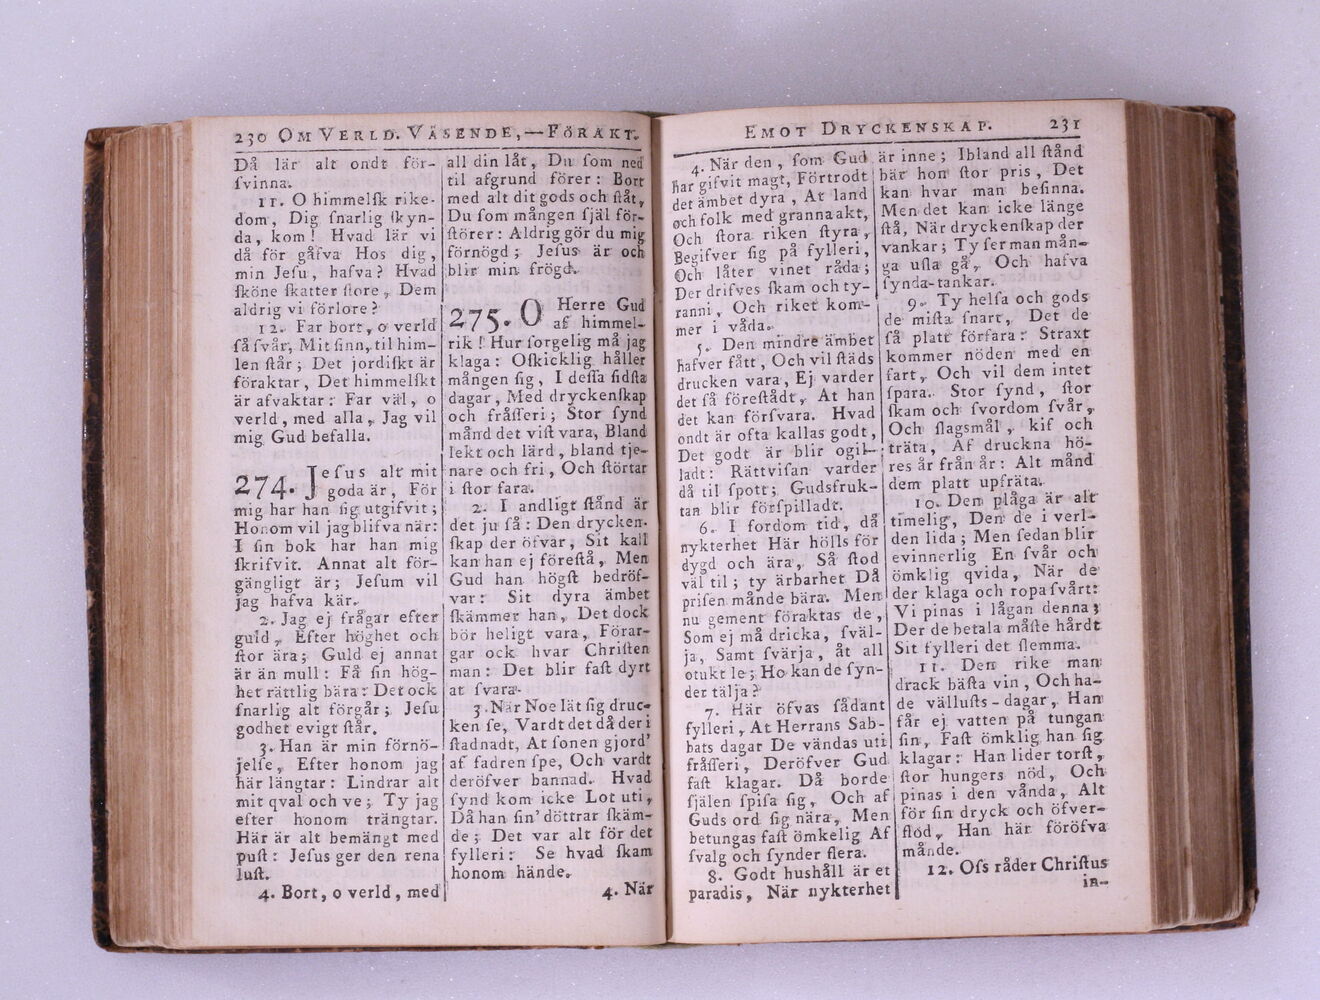 230 OM VERLD. VÄSENDE,—FÖRAKT.
Då lär alt ondt för-
ſvinna.
11. O himmelſk rike-
dom, Dig ſnarlig ſkyn-
da, kom! Hvad lär vi
då för gåfva Hos dig,
min Jeſu, hafva? Hvad
ſköne ſkatter ſtore, Dem
aldrig vi förlore?
12. Far bort, o verld
få ſvår, Mit ſinn, til him-
len ſtår; Det jordiſkt är
föraktar, Det himmelſkt
är afvaktar: Far väl, o
verld, med alla, Jag vil
mig Gud befalla.
274. Jeſus alt mit
goda är, För
mig har han ſig utgifvit;
Honom vil jag blifva när:
I ſin bok har han mig
ſkrifvit. Annat alt för-
gängligt är; Jeſum vil
jag hafva kär.
2. Jag ej frågar efter
guld, Efter höghet och
ſtor ära; Guld ej annat
är än mull: Få ſin hög-
het rättlig bära: Det ock
ſnarlig alt förgår; Jeſu
godhet evigt ſtår.
3. Han är min förnö-
jelſe, Efter honom jag
här längtar: Lindrar alt
mit qval och ve; Ty jag
efter honom trängtar.
Här är alt bemängt med
puſt: Jeſus ger den rena
luſt.
4. Bort, o verld, med
all din låt, Du ſom ned
til afgrund förer: Bort
med alt dit gods och ſtåt,
Du ſom mången ſjäl för-
ſtörer: Aldrig gör du mig
förnögd; Jeſus är och
blir min frögd.
275. O Herre Gud
af himmel-
rik! Hur ſorgelig må jag
klaga: Oſkicklig håller
mången ſig, I deſſa ſidſta
dagar, Med dryckenſkap
och fråſſeri; Stor ſynd
månd det viſt vara, Bland
lekt och lärd, bland tje-
nare och fri, Och ſtörtar
i ſtor fara.
2. I andligt ſtånd är
det ju ſå: Den drycken-
ſkap der öfvar, Sit kall
kan han ej föreſtå, Men
Gud han högſt bedröf-
var: Sit dyra ämbet
ſkämmer han, Det dock
bör heligt vara, Förar-
gar ock hvar Chriſten
man: Det blir faſt dyrt
at ſvara.
3. När Noe lät ſig druc-
ken ſe, Vardt det då der i
ſtadnadt, At ſonen gjord'
af fadren ſpe, Och vardt
deröfver bannad. Hvad
ſynd kom icke Lot uti,
Då han ſin' döttrar ſkäm-
de; Det var alt för det
fylleri: Se hvad ſkam
honom hände.
4. När
EMOT DRYCKENSKAP. 231
4. När den, ſom Gud
har gifvit magt, Förtrodt
det ämbet dyra, At land
och folk med granna akt,
Och ſtora riken ſtyra,
Begifver ſig på fylleri,
Och låter vinet råda;
Der drifves ſkam och ty-
ranni, Och riket kom-
mer i våda.
5. Den mindre ämbet
hafver fått, Och vil ſtäds
drucken vara, Ej varder
det få föreſtådt, At han
det kan förſvara. Hvad
ondt är ofta kallas godt,
Det godt är blir ogil-
ladt: Rättviſan varder
då til ſpott; Gudsfruk-
tan blir förſpilladt.
6. I fordom tid, då
nykterhet Här hölls för
dygd och ära, Så ſtod
väl til; ty ärbarhet Då
priſen månde bära. Men
nu gement föraktas de,
Som ej må dricka, ſväl-
ja, Samt ſvärja, åt all
otukt le; Ho kan de ſyn-
der tälja?
7. Här öfvas ſådant
fylleri, At Herrans Sab-
bats dagar De vändas uti
fråſſeri, Deröfver Gud
faſt klagar. Då borde
ſjälen ſpiſa ſig, Och af
Guds ord ſig nära, Men
betungas faſt ömkelig Af
ſvalg och ſynder flera.
8. Godt hushåll är et
paradis, När nykterhet
är inne; Ibland all ſtånd
bär hon ſtor pris, Det
kan hvar man befinna.
Men det kan icke länge
ſtå, När dryckenſkap der
vankar; Ty ſer man mån-
ga uſla gå, Och hafva
ſynda-tankar.
9. Ty helſa och gods
de miſta ſnart, Det de
få platt förfara: Straxt
kommer nöden med en
fart, Och vil dem intet
ſpara. Stor ſynd, ſtor
ſkam och ſvordom ſvår,
Och ſlagsmål, kif och
träta, Af druckna hö-
res år från år: Alt månd
dem platt upfräta.
10. Den plåga är alt
timelig, Den de i verl-
den lida; Men ſedan blir
evinnerlig En ſvår och
ömklig qvida, När de
der klaga och ropa ſvårt:
Vi pinas i lågan denna;
Der de betala måſte hårdt
Sit fylleri det ſlemma.
11. Den rike man
drack bäſta vin, Och ha-
de välluſts-dagar, Han
får ej vatten på tungan
ſin, Faſt ömklig han ſig
klagar: Han lider torſt,
ſtor hungers nöd, Och
pinas i den vånda, Alt
för ſin dryck och öfver-
flöd, Han här föröfva
månde.
12. Oſs råder Chriſtus
in-